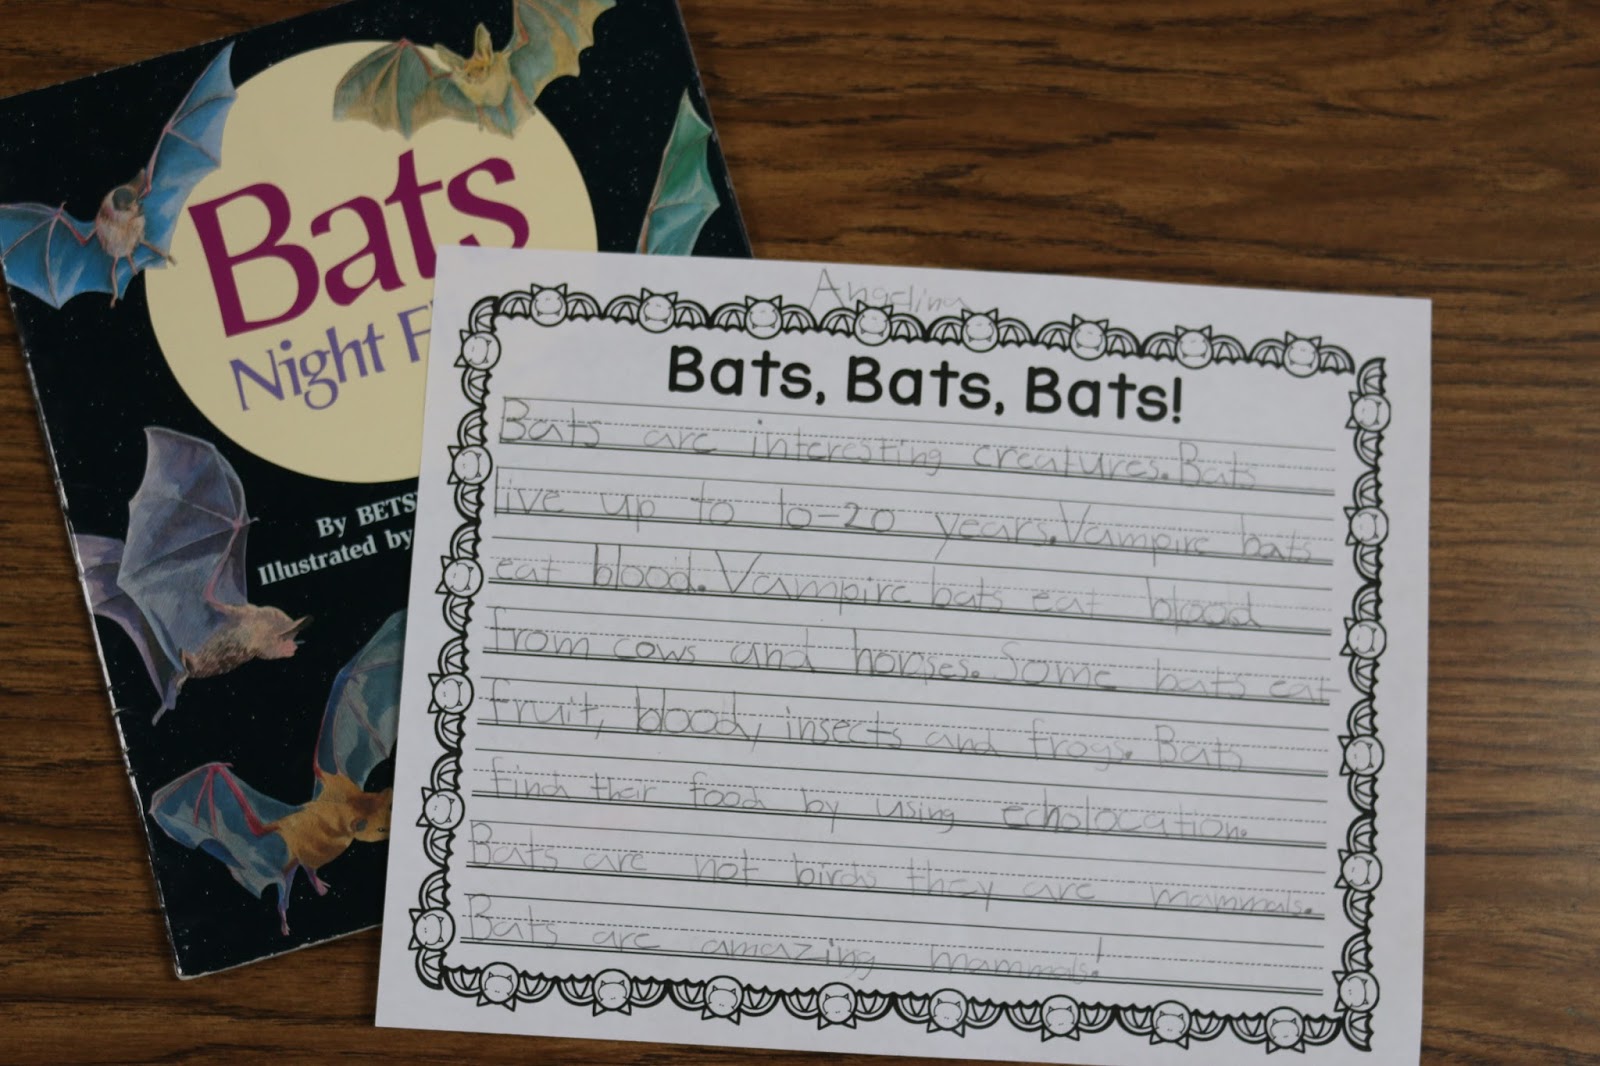 Bats
Night F
By BETS
Illustrated by
Angelina
Bats, Bats, Bats!
Bats are interesting creatures. Bats
live up to to-20 years. Vampire bats
eat blood. Vampire bats eat blood
from cows and horses. Some bats eat
fruit, blood, insects and frogs. Bats
find their food by using echolocation.
Bats are not birds they are mammals.
Bats are amazing mammals!